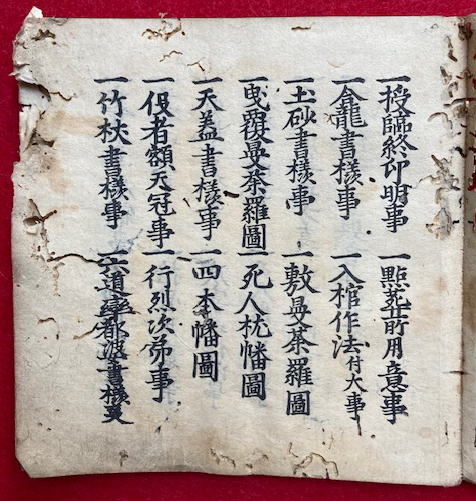 一授臨終印明事 一點葬所用意事
一龕書樣事 一入棺作法付大事
一土砂書樣事 一敷曼荼羅圖
一曳覆曼荼羅圖 一死人枕幡圖
一天盖書樣事 一四本幡圖
一伇者額天冠事 一行烈次第事
一竹杖書樣事 一六道率都婆書樣事